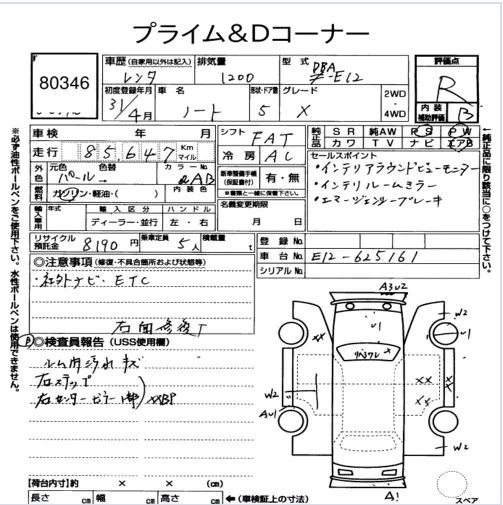 プライム＆Dコーナー
80346
車歴 (自家用以外は記入) レンタ
排気量 1200
型式 DBA E12
評価点 R
内装補助評価 B
初度登録年月 31/4月
車名 ノート
形状・ドア数 5
グレード X
2WD・4WD
車検 年 月
走行 85,647 Km マイル
シフト FAT
冷房 AC
純正品 SR 純AW PS PW
カワ TV ナビ エアB
元色 色替 カラーNo.
パール→ QAB
燃料 ガソリン・軽油・( ) 内装色
新車整備手帳(保証書付) 有・無
※書類と一緒に保管下さい。
輸入車用 年式 輸入区分 ハンドル
ディーラー・並行 左・右
名義変更期限 月 日
セールスポイント
・インテリアラウンドビューモニター
・インテリルームミラー
・エマージェンシーブレーキ
リサイクル預託金 8190円
乗車定員 5人
積載量 t
登録No.
車台No. E12-625161
シリアルNo.
◎注意事項 (修復・不具合箇所および状態等)
・社外ナビ・ETC
右面修復了
◎検査員報告 (USS使用欄)
ルーム内汚れキズ
右ステップ
右センターピラー XXBP
【荷台内寸】約 × × (cm)
長さ cm 幅 cm 高さ cm ←(車検証上の寸法)
※必ず油性ボールペンをご使用下さい。水性ボールペンは使用できません。
←純正品に限り該当に○をつけて下さい。
A3U2
U1
W2
XX
U1
リペワレ
XX
XX
XX
W2
AU1
W2
A1
スペア